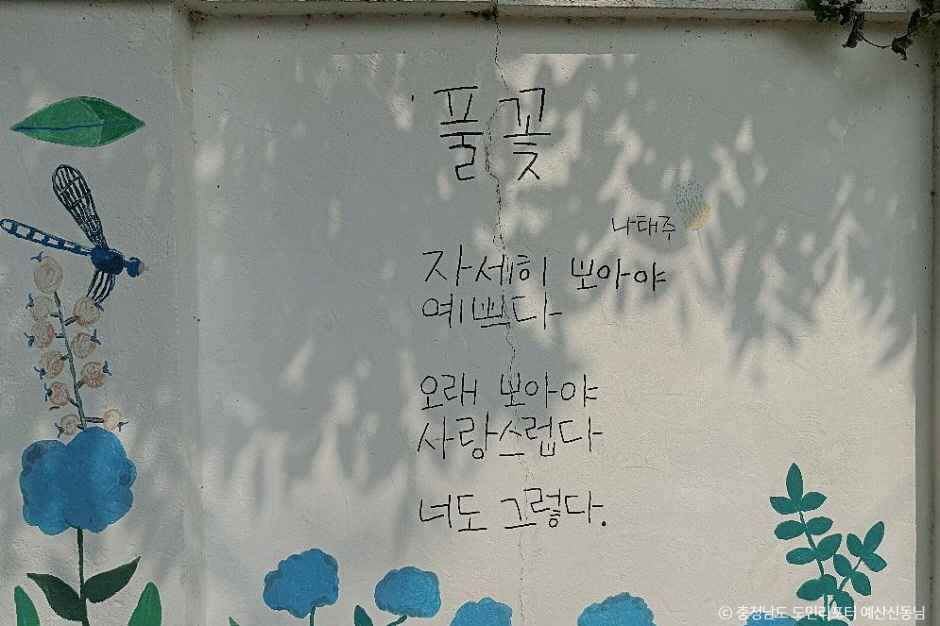 풀꽃
나태주
자세히 보아야
예쁘다
오래 보아야
사랑스럽다
너도 그렇다.
© 충청남도 도민리포터 예산신동님